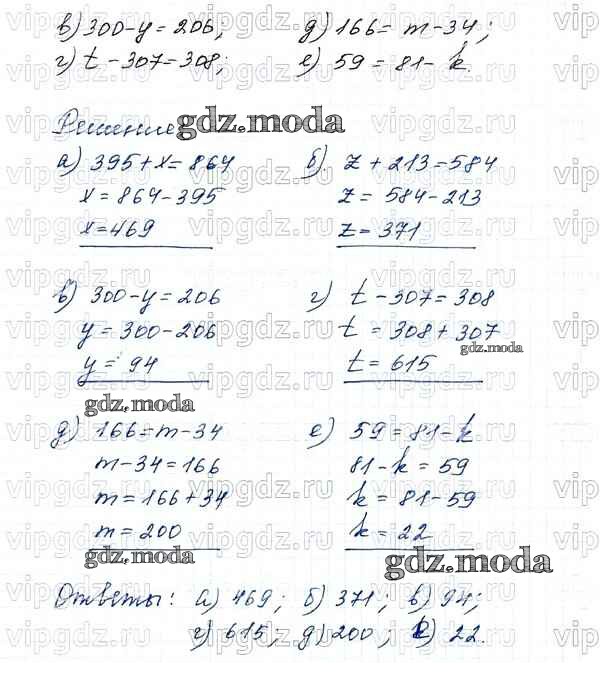 в) 300-y=206; д) 166=m-34;
г) t-307=308; е) 59=81-k.
Решение
gdz.moda
а) 395+x=864 б). z+213=584
x=864-395 z=584-213
x=469 z=371
в) 300-y=206 г) t-307=308
y=300-206 t=308+307
gdz.moda
y=94 t=615
gdz.moda
д) 166=m-34 е) 59=81-k
m-34=166 81-k=59
m=166+34 k=81-59
m=200 k=22
gdz.moda gdz.moda
Ответы: а) 469; б) 371; в) 94;
г) 615; д) 200; е) 22.
vipgdz.ru